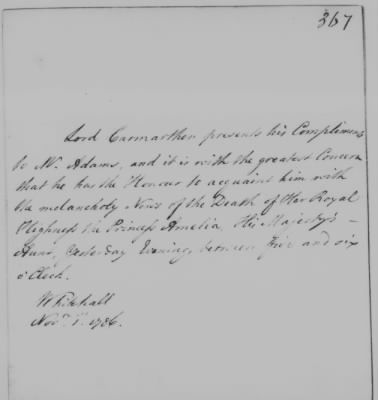 367
Lord Carmarthen presents his Compliments
to Mr. Adams, and it is with the greatest Concern
that he has the Honour to acquaint him with
the melancholy News of the Death of Her Royal
Highness the Princess Amelia, His Majesty's -
Aunt, Yesterday Evening, between five and six
o'Clock.
Whitehall
Novr. 1st. 1786.